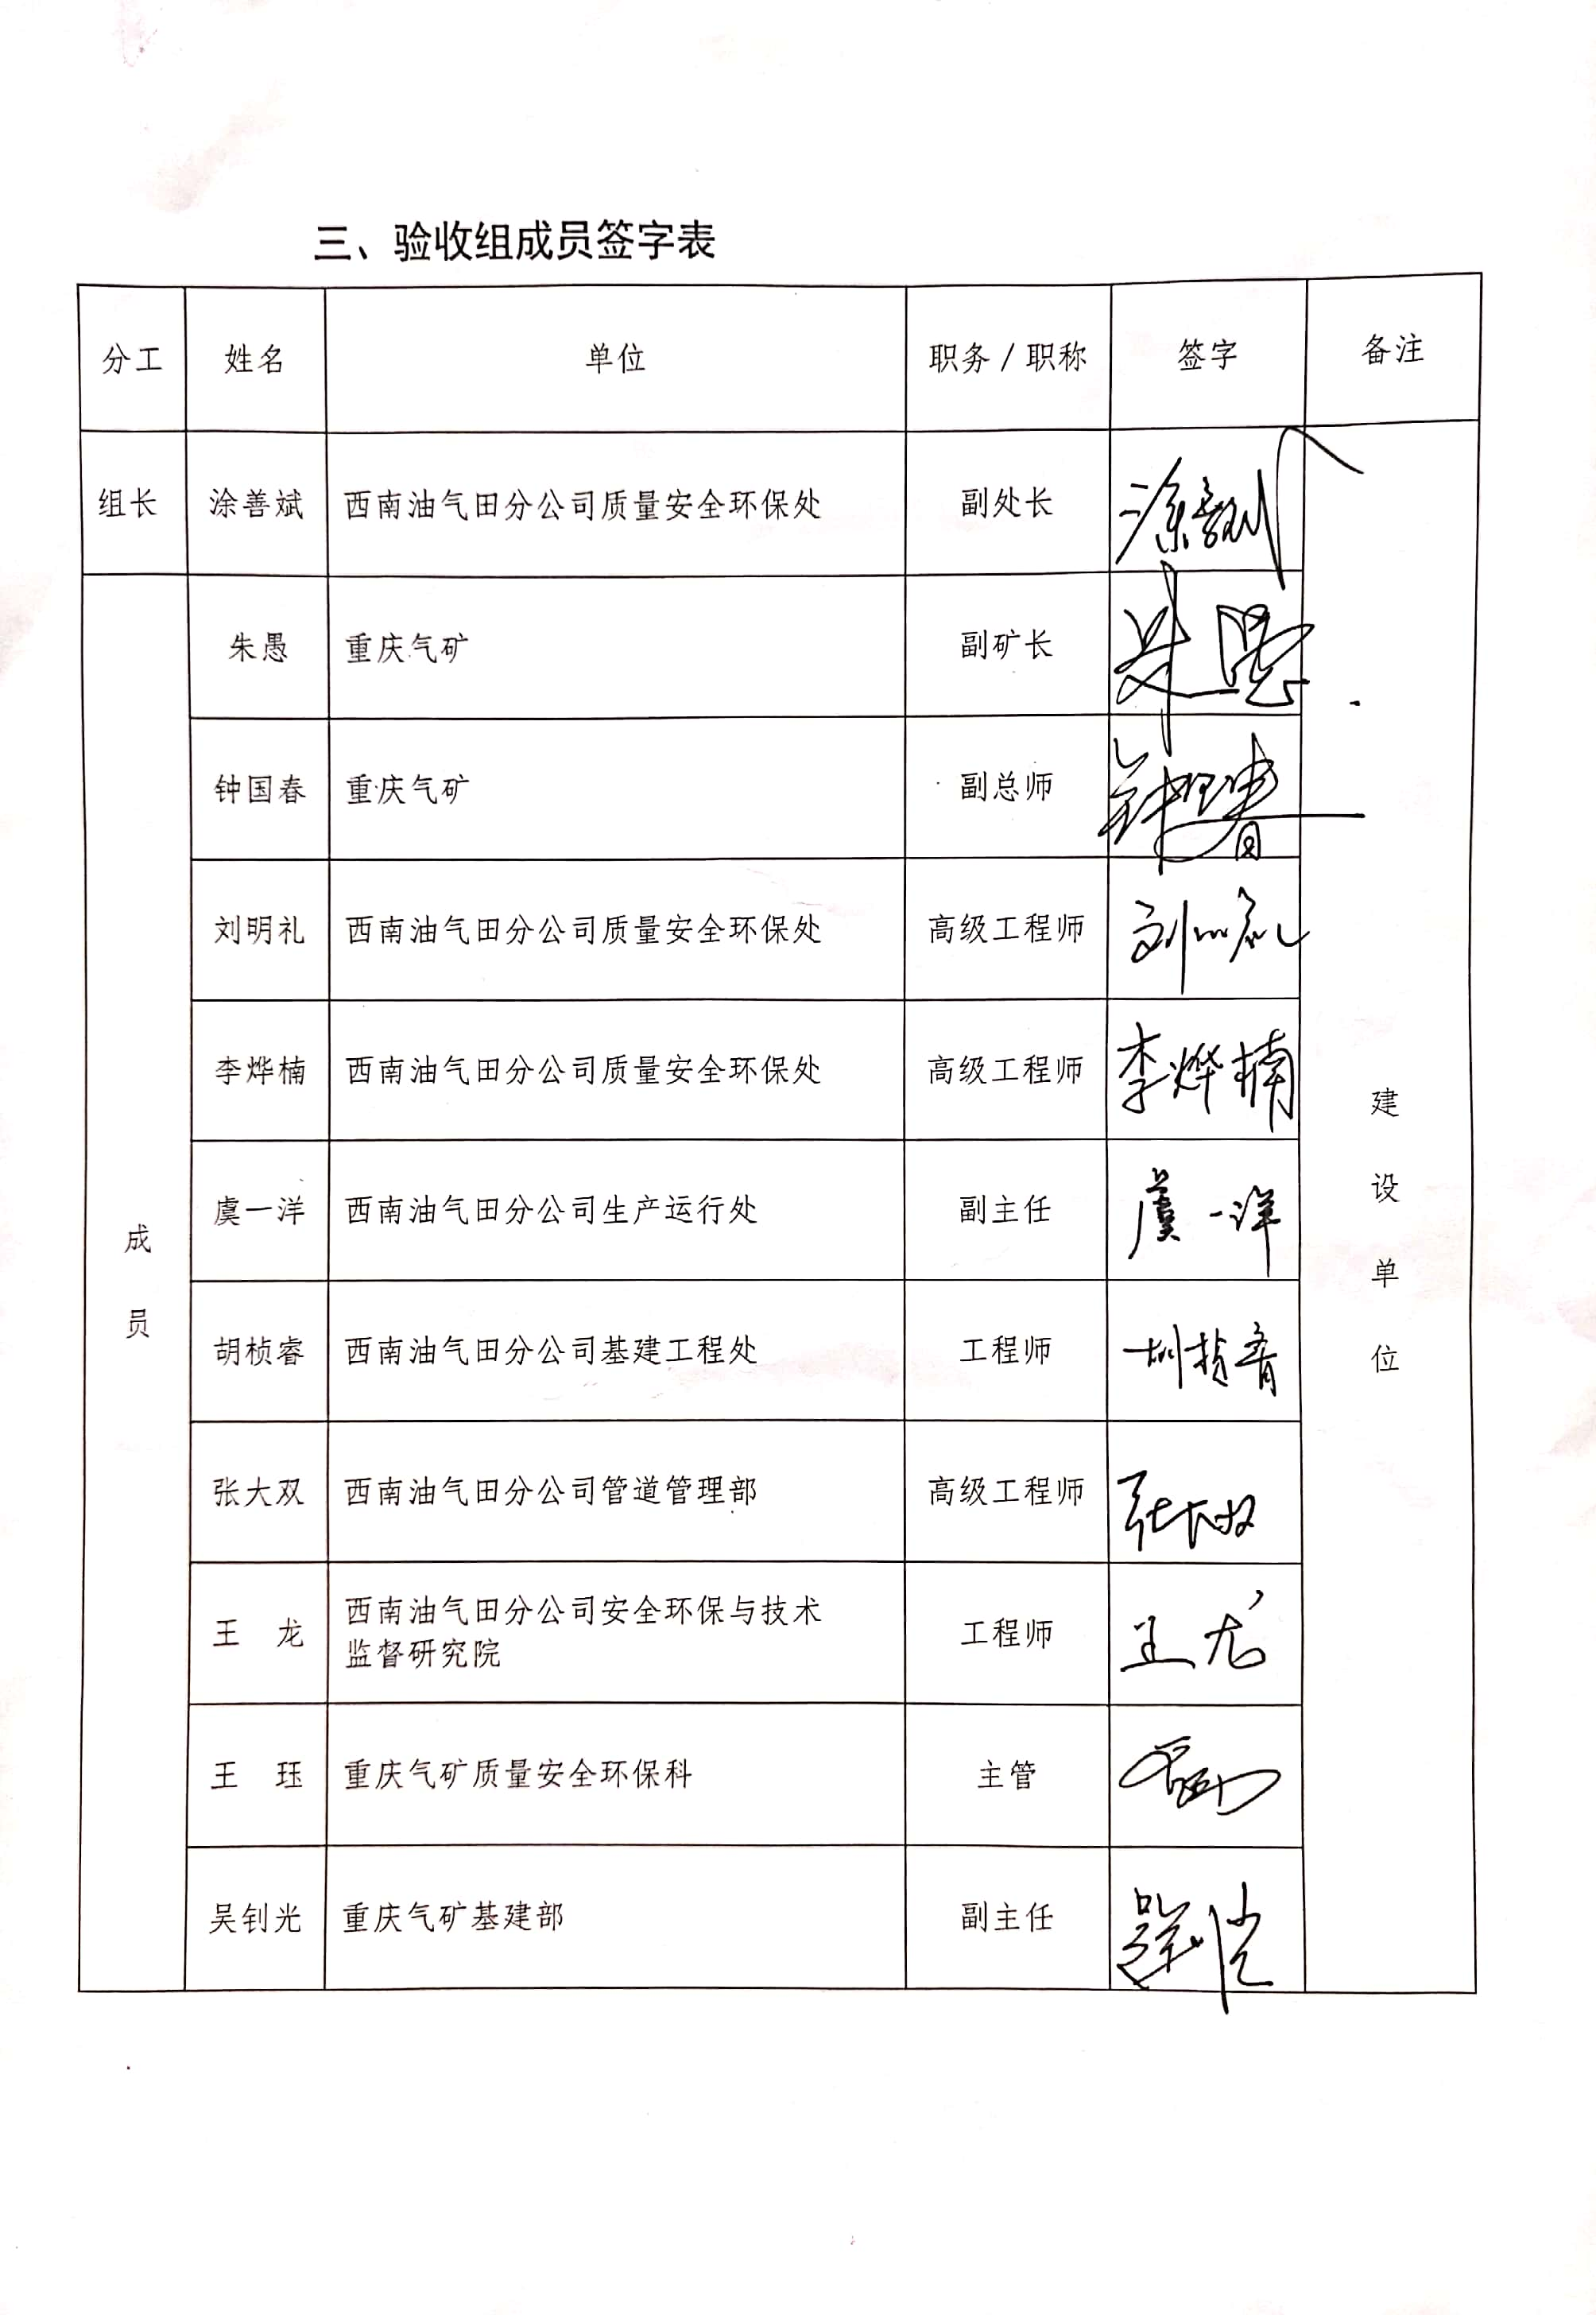 三、验收组成员签字表
分工 姓名 单位 职务/职称 签字 备注
组长 涂善斌 西南油气田分公司质量安全环保处 副处长 涂善斌
朱愚 重庆气矿 副矿长 朱愚
钟国春 重庆气矿 副总师 钟国春
刘明礼 西南油气田分公司质量安全环保处 高级工程师 刘明礼
李烨楠 西南油气田分公司质量安全环保处 高级工程师 李烨楠
虞一洋 西南油气田分公司生产运行处 副主任 虞一洋
胡桢睿 西南油气田分公司基建工程处 工程师 胡桢睿
张大双 西南油气田分公司管道管理部 高级工程师 张大双
王 龙 西南油气田分公司安全环保与技术
监督研究院 工程师 王龙
王 珏 重庆气矿质量安全环保科 主管
吴钊光 重庆气矿基建部 副主任 吴钊光
成
员
建
设
单
位